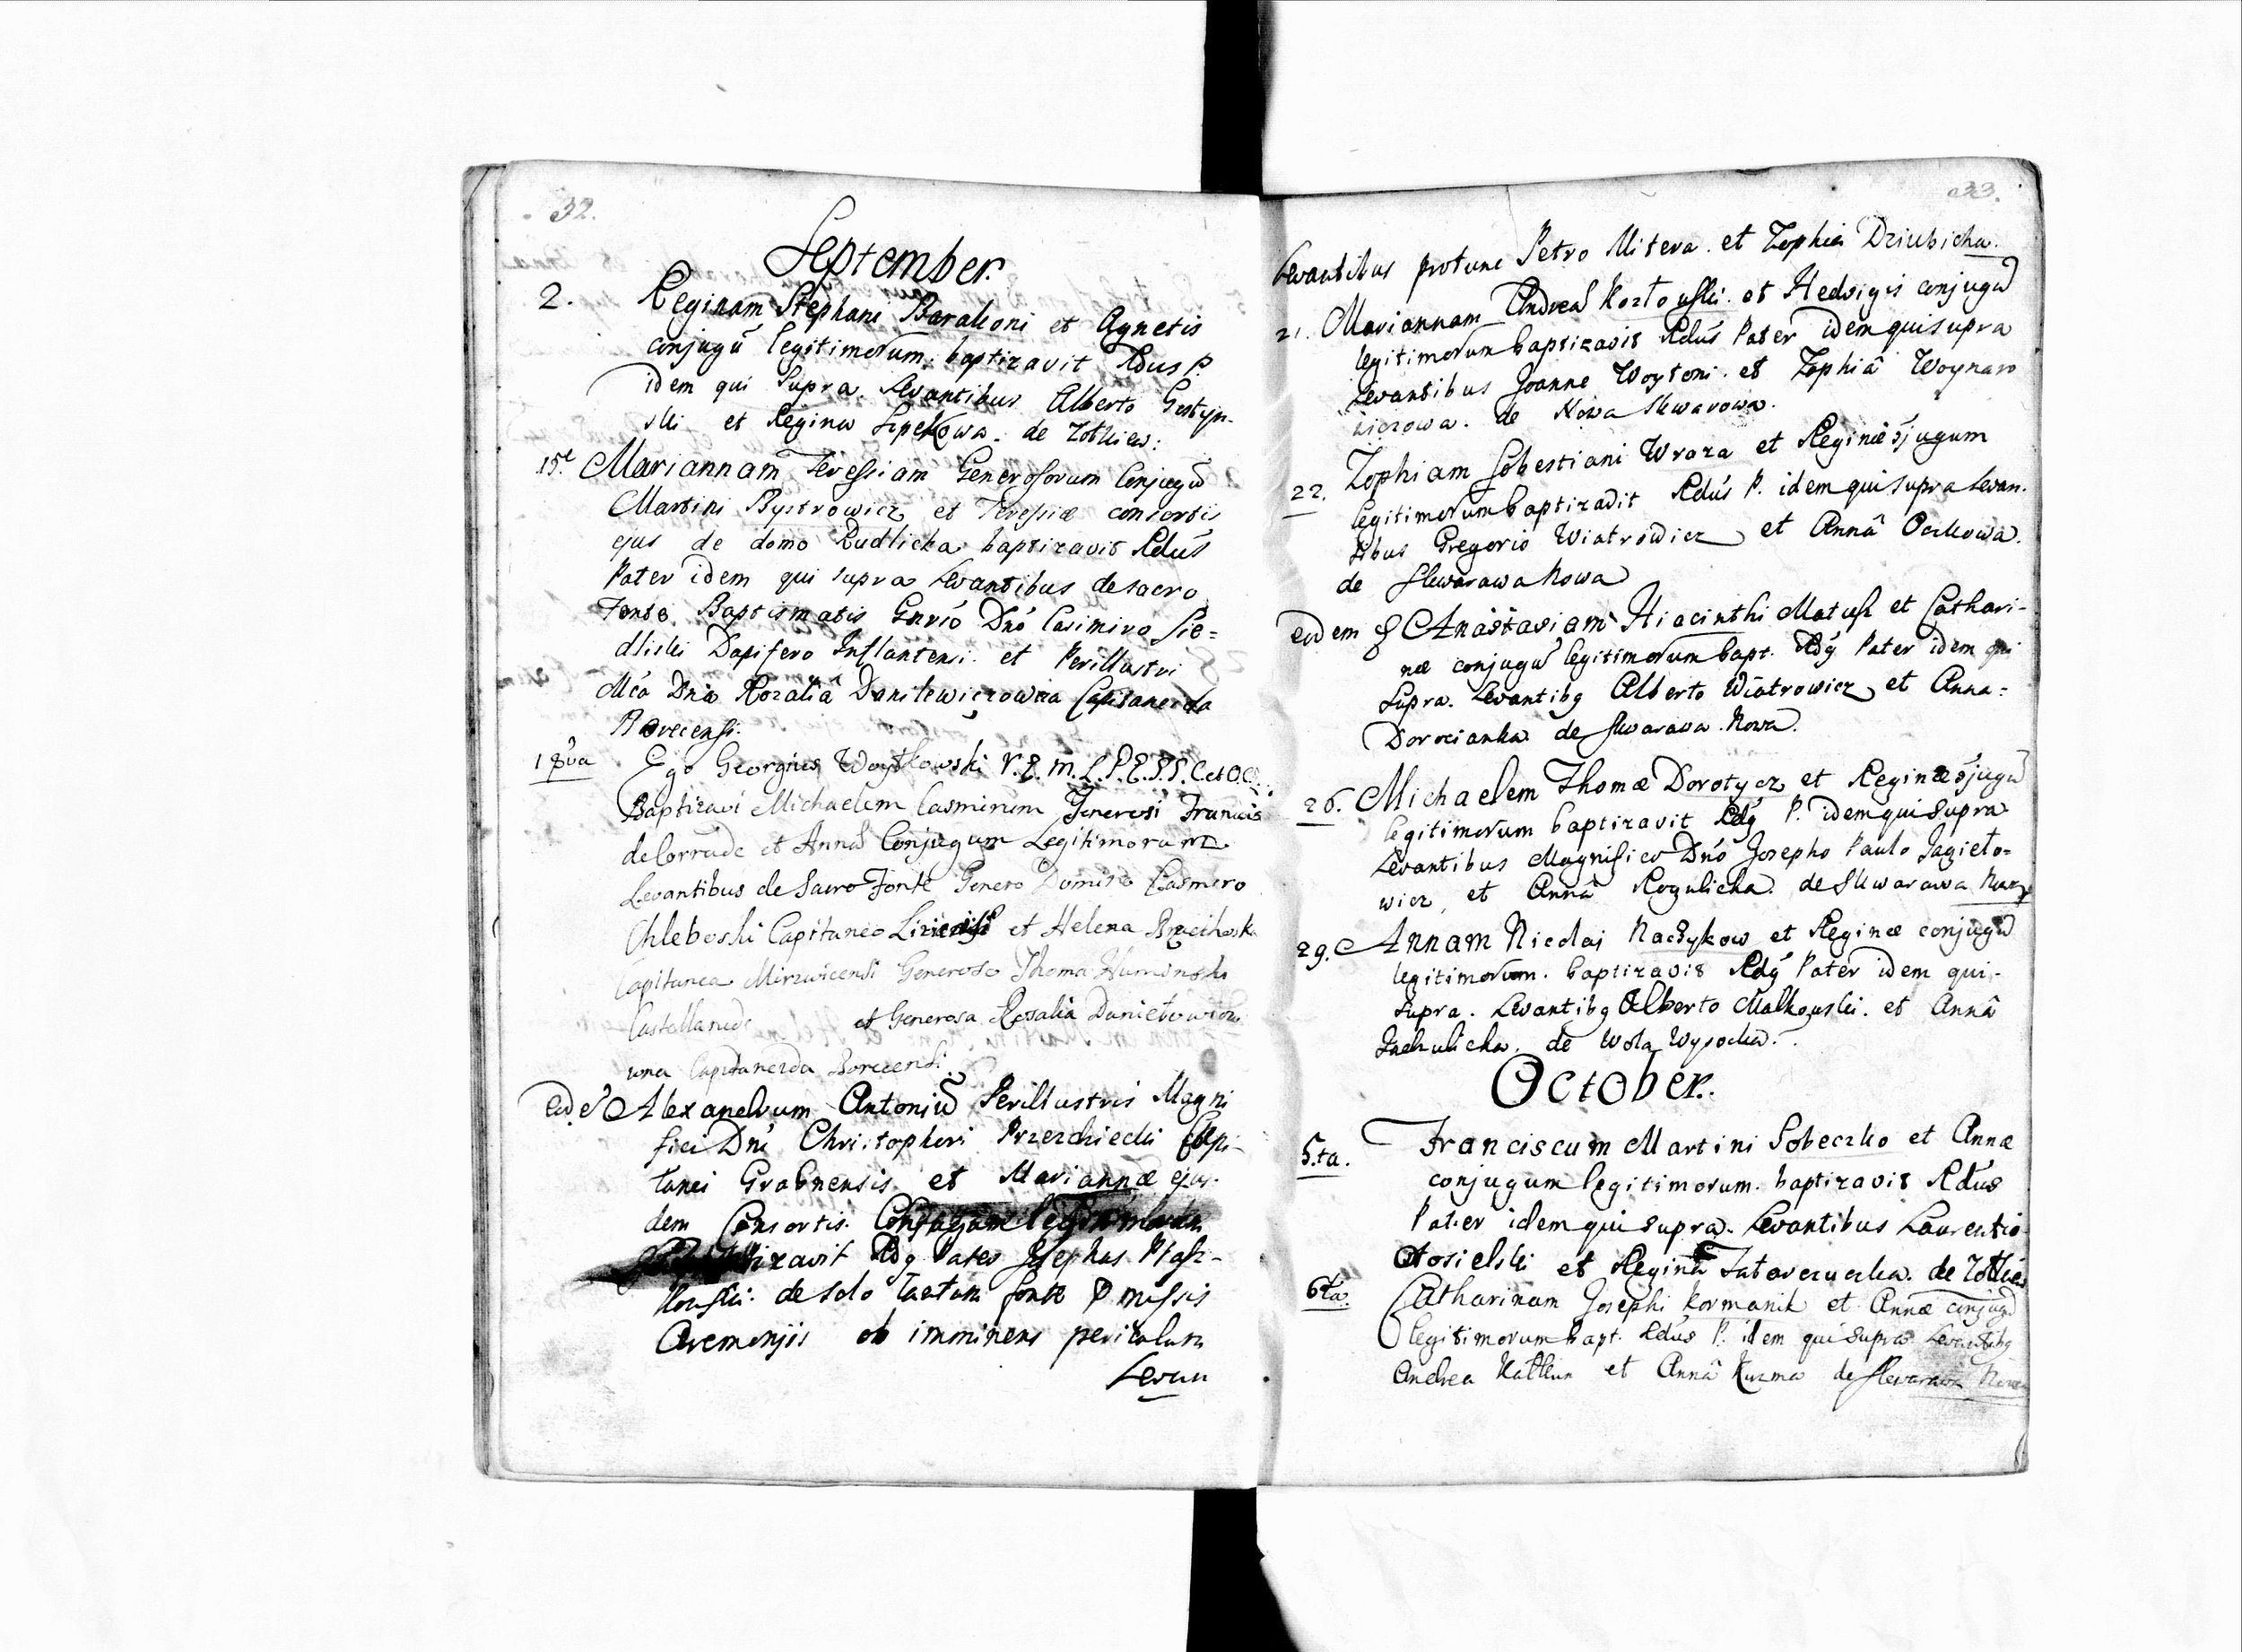 32.
September.
2. Reginam Stephani Barakoni et Agnetis
conjugũ legitimorum. baptizavit Rdus P.
idem qui supra. Levantibus Alberto Gostyn-
ski et Regina de Zolkiew:
15. Mariannam Teressiam Generosorum Conjugũ
Martini Bystrowicz et Teressiæ consortis
ejus de domo Rudlicka baptizavit Rdús
Pater idem qui supra Levantibus de sacro
Fonte Baptismatis Gnrió Dnó Casimiro Sie=
dliski Dapifero Inflantensi. et Perillustri
Mća Dnia Rozaliâ Danilewiczowna Capitaneida
Borecensi.
18va Ego Georgius Woytkowski V.E.M.L.P.E.P.P.C et O.C.
Baptizavi Michaelem Casmirum Generosi Francis
de Corrade et Anna Conjugum Legitimorum
Levantibus de Sacro Fonte Genero Domino Casmero
Chleboski Capitaneo et Helena
Capitanea Mirzwicensi Generoso Thoma Huminski
Castellanide et Generosa Rosalia Danielowiczo
wna Capitaneida Borecensi.
Eod é Alexandrum Antoniũ Perillustris Magni
fici Dni Christopheri Przerdziecki Capi-
tanei Grabnensis et Mariannæ ejus-
dem Consortis. Conjugum legitimorum
baptizavit Rdg Pater Josephus Ptasz-
kowski. de solo tantum fonte missis
Ceremonjis ob imminens periculum
Levan
33.
Levantibus protunc Petro Mitera. et Zophia Dziubicha.
21. Mariannam Andreæ Kozłowski. et Hedvigis conjugũ
legitimorum baptizavit Rdús Pater idem qui supra
Levantibus Joanne Woytoni. et Zophiâ Woynaro
wiczowa. de Nowa Skwarowa.
22. Zophiam Sobestiani Wroza et Reginæ ɔjugum
legitimorum baptizavit Rdús P. idem qui supra Levan.
tibus Gregorio Wiatrowicz et Annâ Ockowa.
de Skwarawa Nowa
eodem Anastasiam Hiacinthi Matusz et Cathari-
næ conjugũ legitimorum bapt. Rdg Pater idem qui
supra. Levantibg Alberto Wiatrowicz et Anna=
Dorocianka de Skwarava Nowa.
26. Michaelem Thomæ Dorotycz et Reginæ ɔjugũ
legitimorum baptizavit Rdg P. idem qui supra
Levantibus Magnifico Dnó Josepho Paulo Jagieło=
wicz, et Annâ Rogulicha. de Skwarawa Nowa
29. Annam Nicolai Naczykow et Reginæ conjugũ
legitimorum. baptizavit Rdg Pater idem qui-
supra. Levantibg Alberto Malkowski. et Annâ
Jachulicha. de Wola Wysocka.
October.
5.ta. Franciscum Martini Sobeczko et Annæ
conjugum legitimorum. baptizavit Rdús
Pater idem qui supra. Levantibus Laurentio
Osielski et Reginâ Tatarczucka. de Zołkiew
6ta. Catharinam Josephi Kormanik et Annæ conjugũ
legitimorum bapt. Rdús P. idem qui supra Levantibg
Andrea et Annâ Kuzma de Skwarawa Nowa